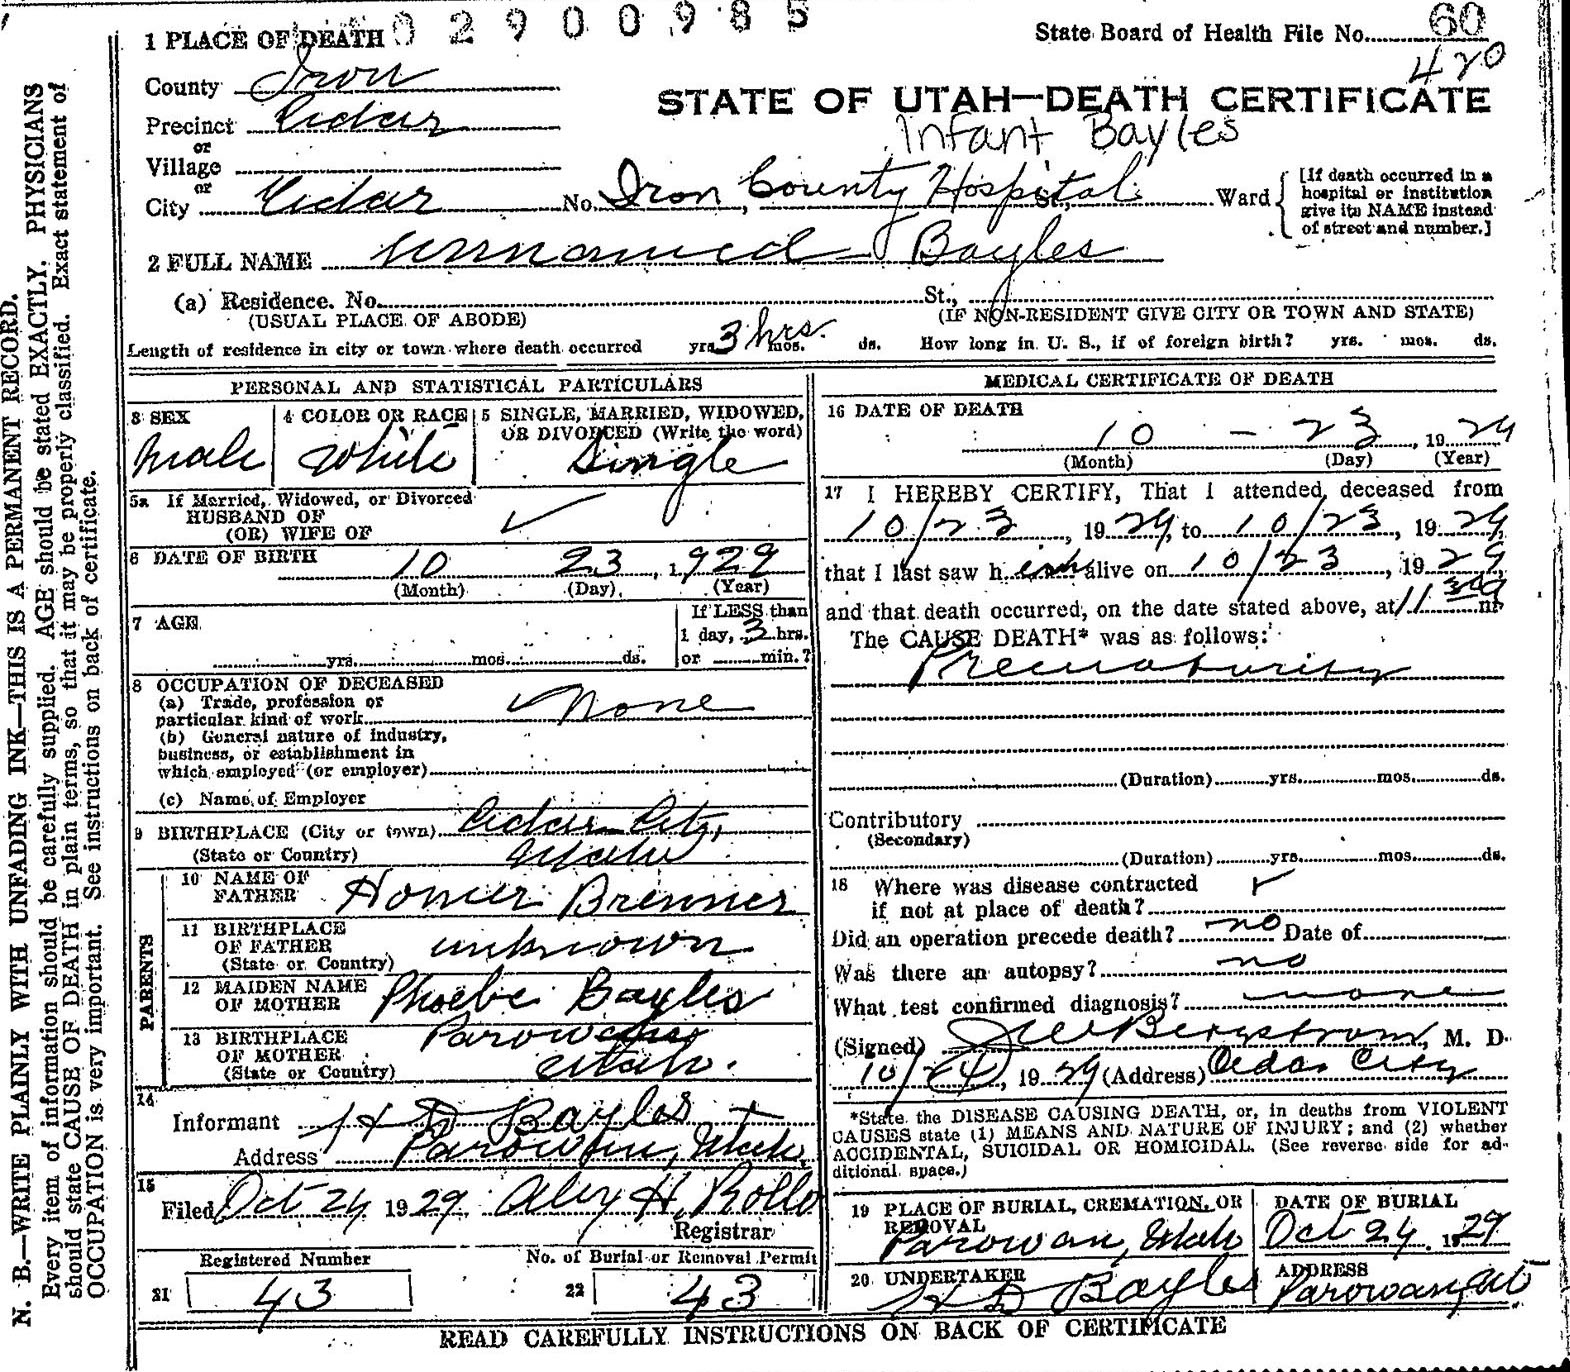 02900985
State Board of Health File No. 60
420
1 PLACE OF DEATH
County Iron
STATE OF UTAH—DEATH CERTIFICATE
Precinct Cedar
or
Infant Bayles
Village
or
City Cedar No. Iron County Hospital St., Ward
[If death occurred in a
hospital or institution
give its NAME instead
of street and number.]
2 FULL NAME unnamed Bayles
(a) Residence. No. St.,
(USUAL PLACE OF ABODE) (IF NON-RESIDENT GIVE CITY OR TOWN AND STATE)
Length of residence in city or town where death occurred yrs. 3 hrs. mos. ds. How long in U. S., if of foreign birth? yrs. mos. ds.
PERSONAL AND STATISTICAL PARTICULARS
3 SEX
male
4 COLOR OR RACE
White
5 SINGLE, MARRIED, WIDOWED,
OR DIVORCED (Write the word)
Single
5a If Married, Widowed, or Divorced
HUSBAND OF
(OR) WIFE OF
6 DATE OF BIRTH 10 23, 1929
(Month) (Day) (Year)
7 AGE
yrs. mos. ds.
If LESS than
1 day, 3 hrs.
or min.?
8 OCCUPATION OF DECEASED
(a) Trade, profession or
particular kind of work None
(b) General nature of industry,
business, or establishment in
which employed (or employer)
(c) Name of Employer
9 BIRTHPLACE (City or town) Cedar City,
(State or Country) Utah
PARENTS
10 NAME OF
FATHER Homer Brenner
11 BIRTHPLACE
OF FATHER unknown
(State or Country)
12 MAIDEN NAME
OF MOTHER Phoebe Bayles
13 BIRTHPLACE Parowan
OF MOTHER
(State or Country) Utah.
14
Informant H D Bayles
Address Parowan, Utah
15
Filed Oct 24 1929 Alex H. Rollo
Registrar
Registered Number No. of Burial or Removal Permit
21 43 22 43
MEDICAL CERTIFICATE OF DEATH
16 DATE OF DEATH
10 - 23, 1929
(Month) (Day) (Year)
17 I HEREBY CERTIFY, That I attended deceased from
10/23, 1929, to 10/23, 1929,
that I last saw him alive on 10/23, 1929,
and that death occurred, on the date stated above, at 11 30a m.
The CAUSE DEATH* was as follows:
Prematurity
(Duration) yrs. mos. ds.
Contributory
(Secondary)
(Duration) yrs. mos. ds.
18 Where was disease contracted
if not at place of death?
Did an operation precede death? no Date of
Was there an autopsy? no
What test confirmed diagnosis? none
(Signed) Bergstrom, M. D.
10/24, 1929 (Address) Cedar City
*State the DISEASE CAUSING DEATH, or, in deaths from VIOLENT
CAUSES state (1) MEANS AND NATURE OF INJURY; and (2) whether
ACCIDENTAL, SUICIDAL OR HOMICIDAL. (See reverse side for ad-
ditional space.)
19 PLACE OF BURIAL, CREMATION, OR
REMOVAL
Parowan, Utah
DATE OF BURIAL
Oct 24. 1929
20 UNDERTAKER
H D Bayles
ADDRESS
Parowan, Ut
READ CAREFULLY INSTRUCTIONS ON BACK OF CERTIFICATE
N. B.—WRITE PLAINLY WITH UNFADING INK—THIS IS A PERMANENT RECORD.
Every item of information should be carefully supplied. AGE should be stated EXACTLY. PHYSICIANS
should state CAUSE OF DEATH in plain terms, so that it may be properly classified. Exact statement of
OCCUPATION is very important. See instructions on back of certificate.